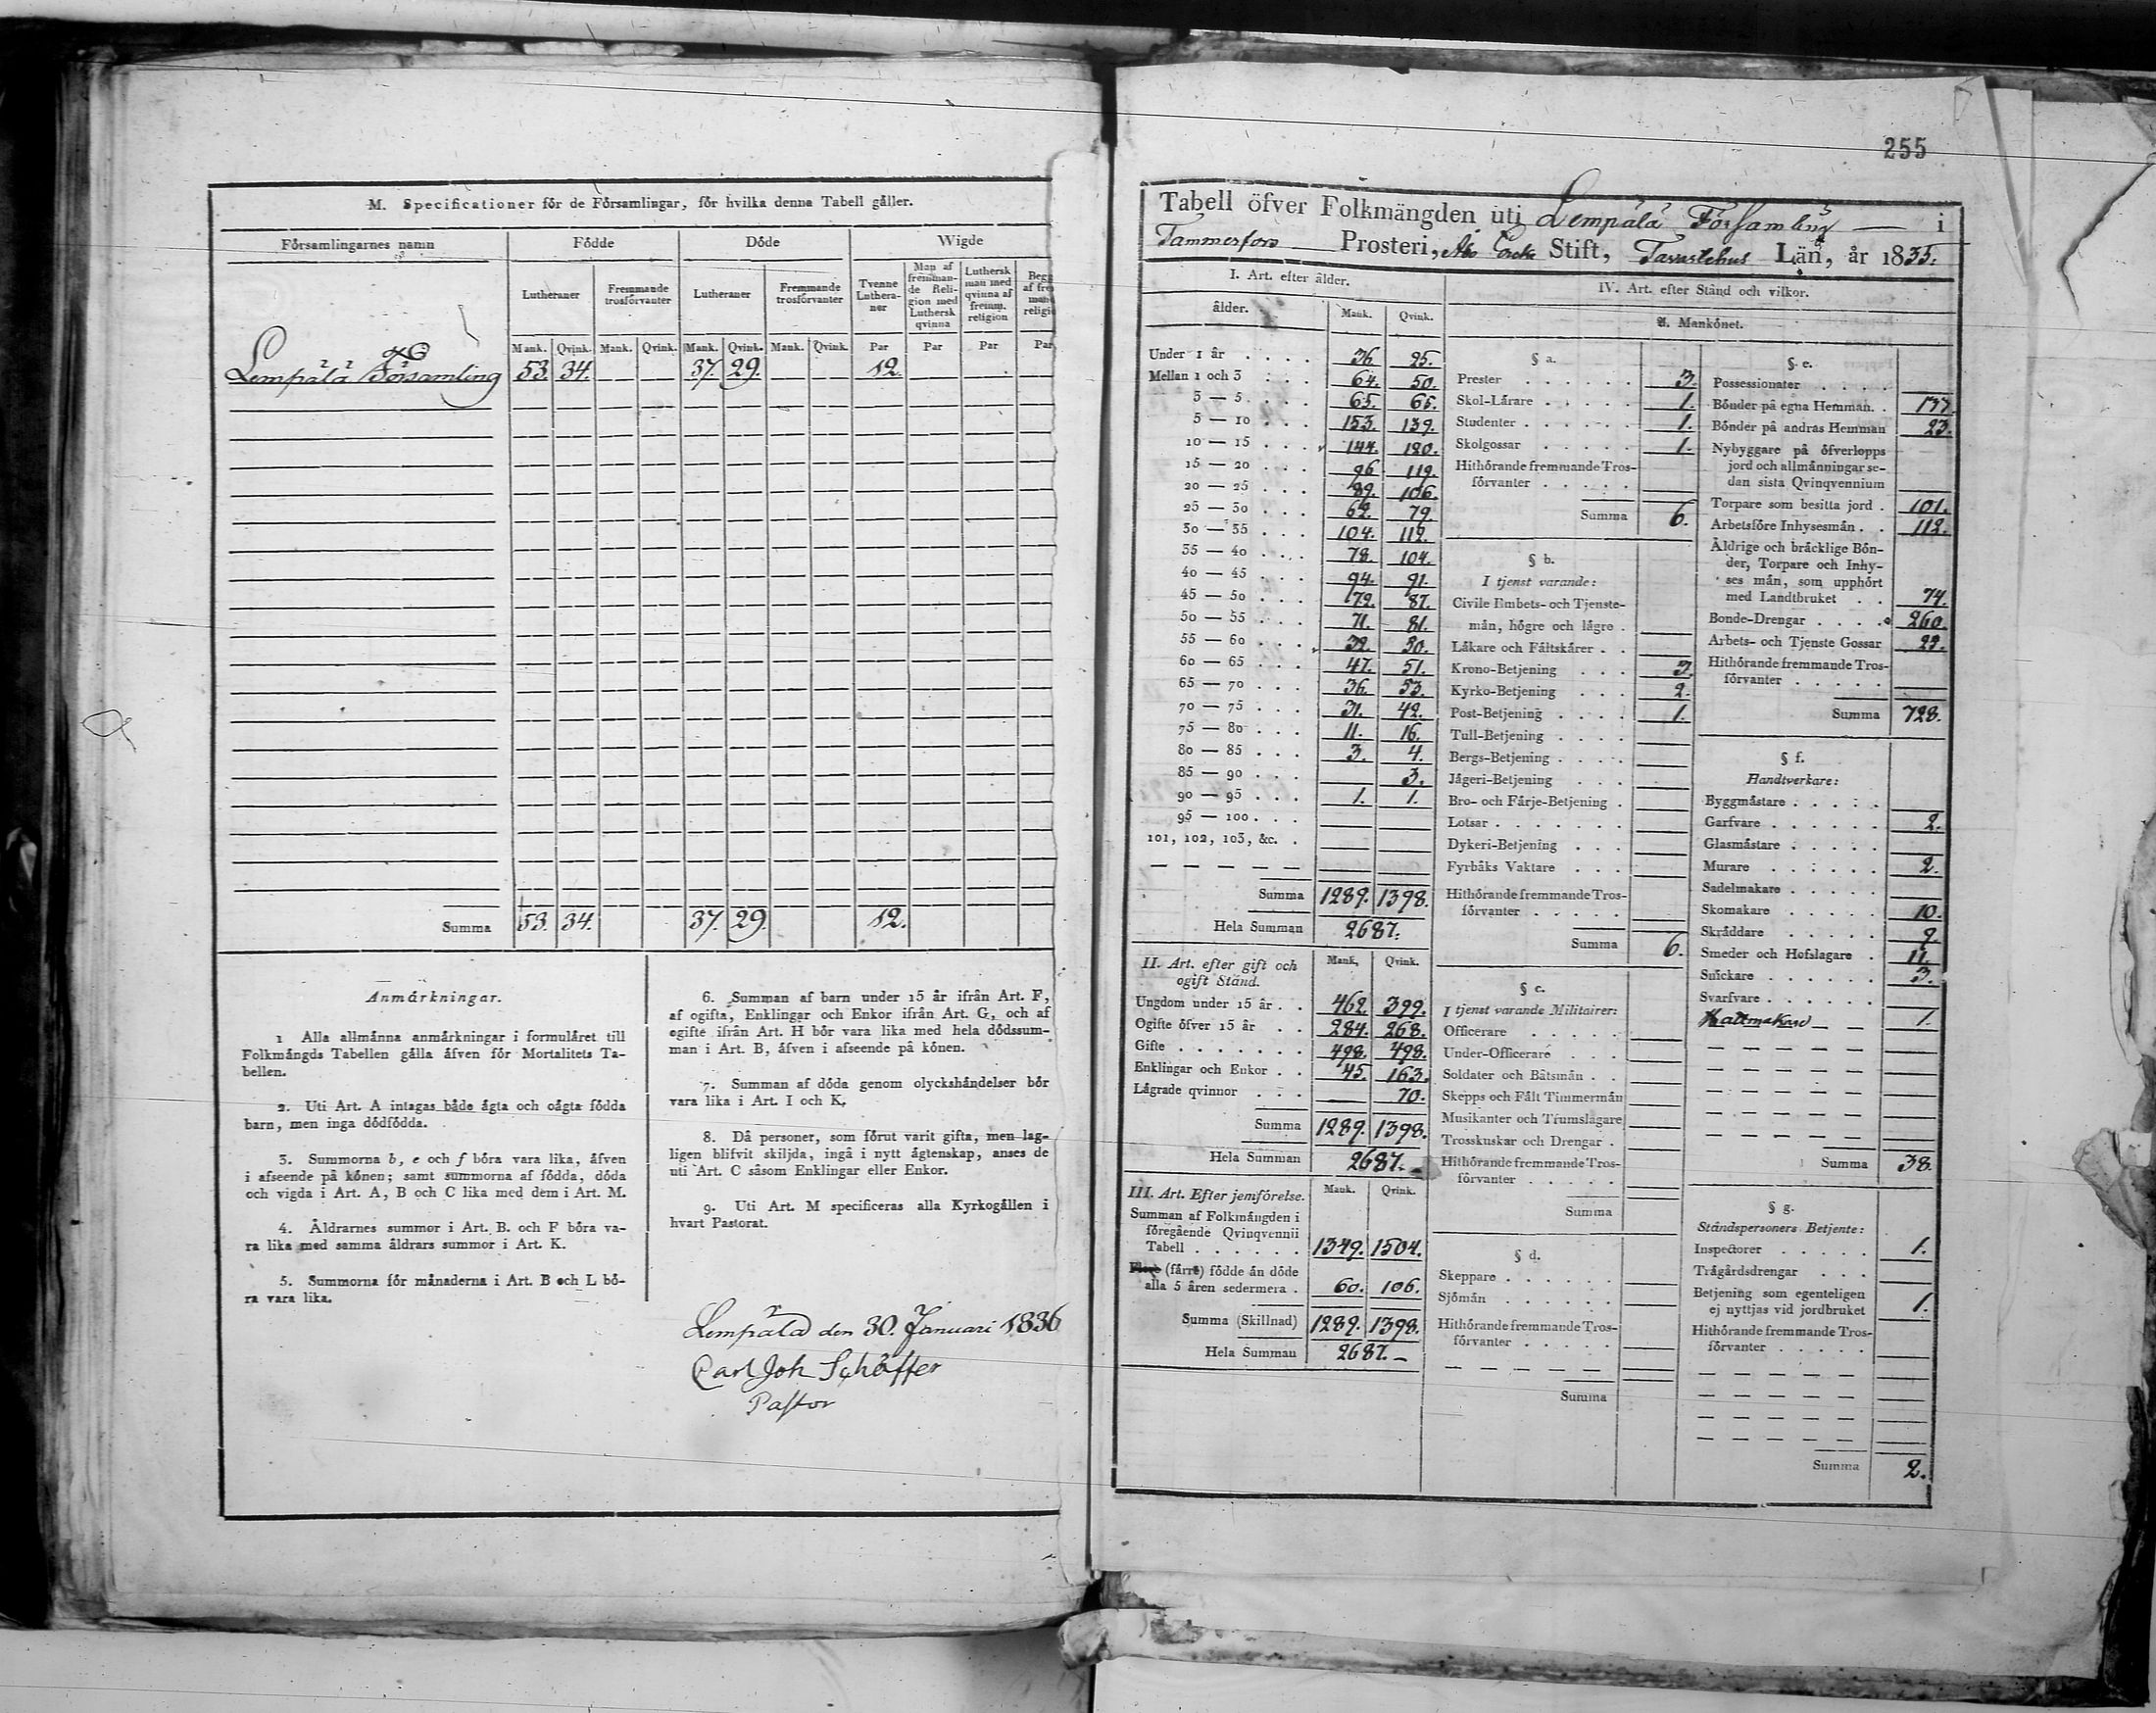 M. Specificationer för de Församlingar, för hvilka denna Tabell gäller.
Församlingarnes namn Födde Döde Wigde
Lutheraner Fremmande trosförvanter Lutheraner Fremmande trosförvanter Tvenne Lutheraner Man af fremmande Religion med Luthersk qvinna Luthersk man med qvinna af fremm. religion
Mank. Qvink. Mank. Qvink. Mank. Qvink. Mank. Qvink. Par Par Par Par
Lempälä Församling 53. 34. 37. 29. 12.
Summa 53. 34. 37. 29. 12.
Anmärkningar.
1 Alla allmänna anmärkningar i formuläret till
Folkmängds Tabellen gälla äfven för Mortalitets Ta-
bellen.
2. Uti Art. A intagas både ägta och oägta födda
barn, men inga dödfödda.
3. Summorna b, e och f böra vara lika, äfven
i afseende på könen; samt summorna af födda, döda
och vigda i Art. A, B och C lika med dem i Art. M.
4. Åldrarnes summor i Art. B. och F böra va-
ra lika med samma åldrars summor i Art. K.
5. Summorna för månaderna i Art. B och L bö-
ra vara lika.
6. Summan af barn under 15 år ifrån Art. F,
af ogifta, Enklingar och Enkor ifrån Art. G, och af
ogifte ifrån Art. H bör vara lika med hela dödssum-
man i Art. B, äfven i afseende på könen.
7. Summan af döda genom olyckshändelser bör
vara lika i Art. I och K.
8. Då personer, som förut varit gifta, men lag-
ligen blifvit skiljda, ingå i nytt ägtenskap, anses de
uti Art. C såsom Enklingar eller Enkor.
9. Uti Art. M specificeras alla Kyrkogällen i
hvart Pastorat.
Lempälä den 30. Januari 1836
Carl Joh Schäffer
Pastor
255
Tabell öfver Folkmängden uti Lempälä Församling i
Tammerfors Prosteri, Åbo Erke Stift, Tavastehus Län, år 1835.
I. Art. efter ålder.
ålder. Mank. Qvink.
Under 1 år 36 25.
Mellan 1 och 3 64. 50.
3 — 5 65. 65.
5 — 10 153. 139.
10 — 15 144. 120.
15 — 20 96 119.
20 — 25 89. 106.
25 — 30 62. 79.
30 — 35 104. 112.
35 — 40 78. 104.
40 — 45 94. 91.
45 — 50 72. 87.
50 — 55 71. 81.
55 — 60 32. 30.
60 — 65 47. 51.
65 — 70 36. 53.
70 — 75 31. 42.
75 — 80 11. 16.
80 — 85 3. 4.
85 — 90 3.
90 — 95 1. 1.
95 — 100
101, 102, 103, &c.
Summa 1289. 1398.
Hela Summan 2687.
II. Art. efter gift och ogift Stånd. Mank. Qvink.
Ungdom under 15 år 462. 399.
Ogifte öfver 15 år 284. 268.
Gifte 498. 498.
Enklingar och Enkor 45. 163.
Lägrade qvinnor 70.
Summa 1289. 1398.
Hela Summan 2687.
III. Art. Efter jemförelse. Mank. Qvink.
Summan af Folkmängden i
föregående Qvinqvennii
Tabell 1349. 1504.
Flere (färre) födde än döde
alla 5 åren sedermera 60. 106.
Summa (Skillnad) 1289. 1398.
Hela Summan 2687.
IV. Art. efter Stånd och vilkor.
A. Mankönet.
§ a.
Prester 3.
Skol-Lärare 1.
Studenter 1.
Skolgossar 1.
Hithörande fremmande Tros-
förvanter
Summa 6.
§ b.
I tjenst varande:
Civile Embets- och Tjenste-
män, högre och lägre
Läkare och Fältskärer
Krono-Betjening 3.
Kyrko-Betjening 2.
Post-Betjening 1.
Tull-Betjening
Bergs-Betjening
Jägeri-Betjening
Bro- och Färje-Betjening
Lotsar
Dykeri-Betjening
Fyrbåks Vaktare
Hithörande fremmande Tros-
förvanter
Summa 6.
§ c.
I tjenst varande Militairer:
Officerare
Under-Officerare
Soldater och Båtsmän
Skepps och Fält Timmermän
Musikanter och Trumslagare
Trosskuskar och Drengar
Hithörande fremmande Tros-
förvanter
Summa
§ d.
Skeppare
Sjömän
Hithörande fremmande Tros-
förvanter
Summa
§ e.
Possessionater
Bönder på egna Hemman. 137.
Bönder på andras Hemman 23.
Nybyggare på öfverlopps
jord och allmänningar se-
dan sista Qvinqvennium
Torpare som besitta jord 101.
Arbetsföre Inhysesmän 112.
Åldrige och bräcklige Bön-
der, Torpare och Inhy-
ses män, som upphört
med Landtbruket 74.
Bonde-Drengar 260.
Arbets- och Tjenste Gossar
Hithörande fremmande Tros-
förvanter
Summa 728.
§ f.
Handtverkare:
Byggmästare
Garfvare 2.
Glasmästare
Murare 2.
Sadelmakare
Skomakare 10.
Skräddare 9.
Smeder och Hofslagare 11.
Snickare 3.
Svarfvare
Hattmakare 1.
Summa 38.
§ g.
Ståndspersoners Betjente:
Inspectorer 1.
Trägårdsdrengar
Betjening som egenteligen
ej nyttjas vid jordbruket 1.
Hithörande fremmande Tros-
förvanter
Summa 2.